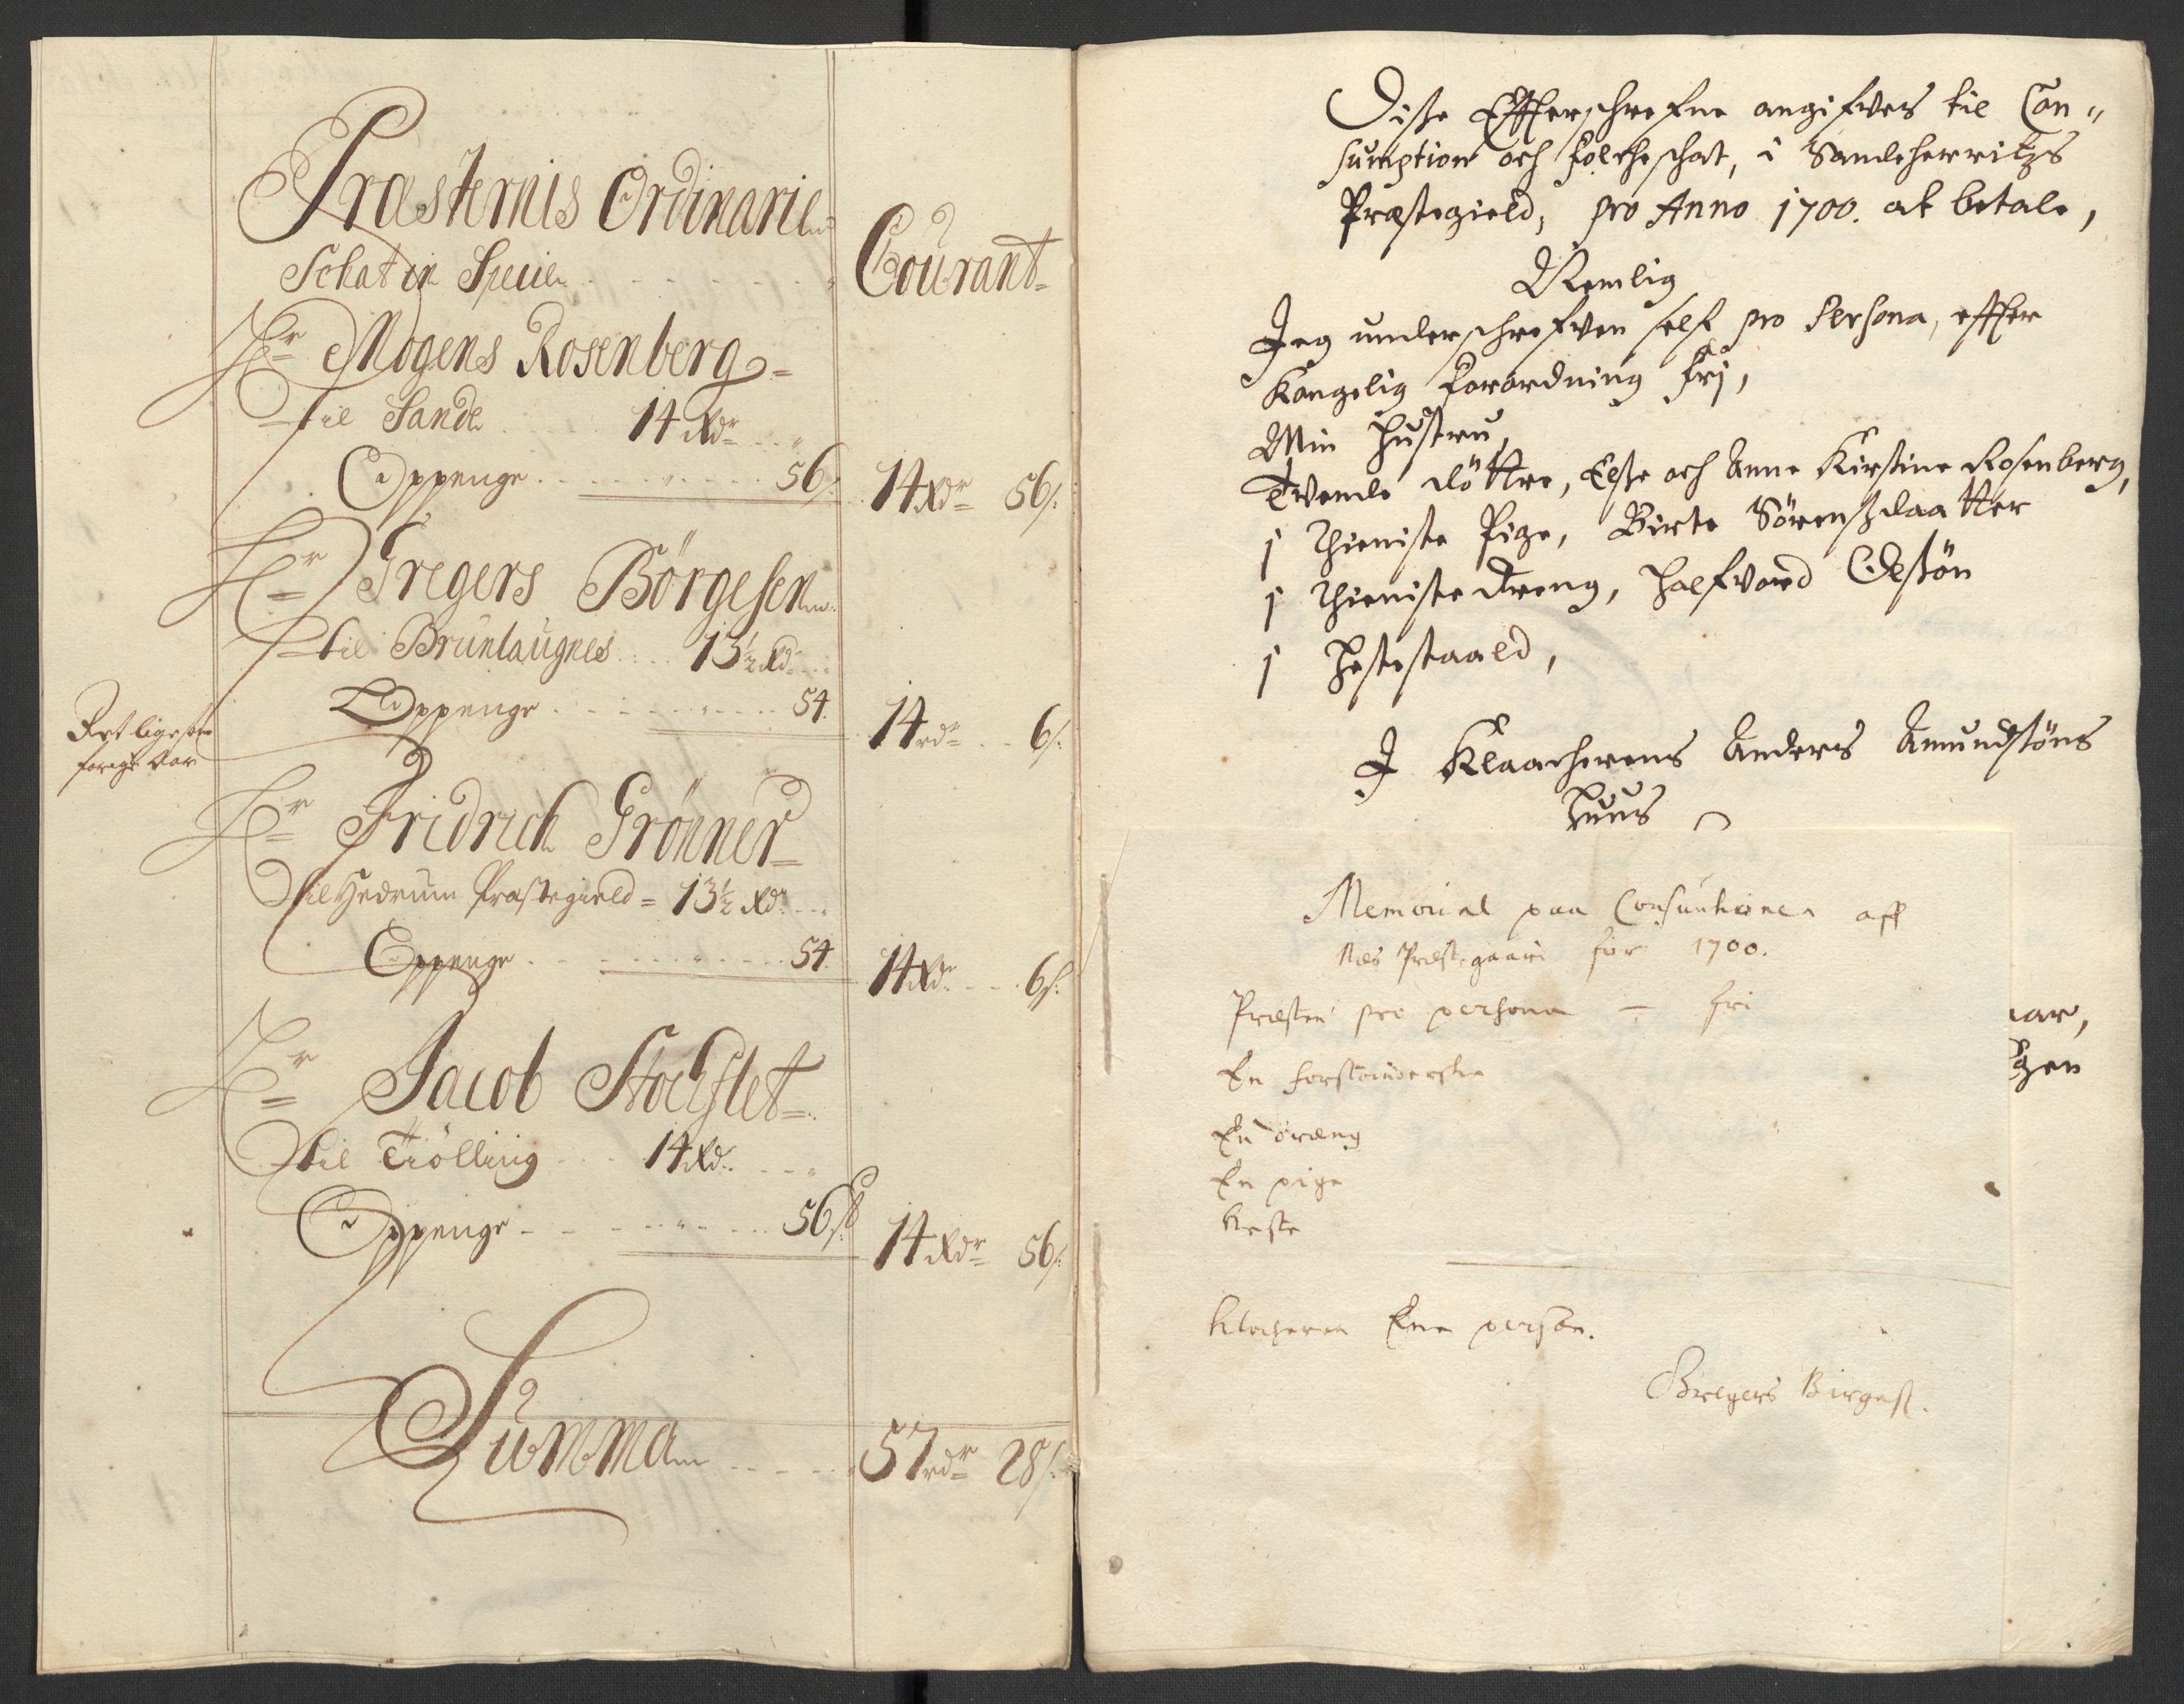 Præsternis Ordinarie
Schat in Specie
Courant
Hr Mogens Rosenberg
til Sande 14 Rdr
Oppenge 56 14 Rdr 56 s:
Hr Gregers Börgesen
til Brunlaugnes 13½ Rd
Oppenge 54 14 rdr 6 s:
Ret ligesom
forige Aar
Hr Fridrich Grönner
til Hedrum Præstegield 13½ Rd
Oppenge 54 14 Rdr 6 s:
Hr Jacob Stochflet
til Tiölling 14 Rd
Oppenge 56 s 14 Rdr 56 s:
Summa 57 rdr 28 s:
Disse Effterschrefne angifves til Con„
sumption och folcheschat, i Sandeherritzs
Præstegield, pro Anno 1700. at betale,
Nemlig
Jeg underschrefven self pro Persona, effter
Kongelig forordning frj,
Min Hustru,
Tvende döttre, Else och Anne Kirstine Rosenberg,
1 Thieniste Pige, Birte Sörenszdaatter
1 Thieniste dreng, Halfvord Olsön
1 Hestestaald,
J Klaacherens Anders Amundsöns
Huus
Memorial paa Consumtionen aff
Næs Præstegaard for 1700.
Præsten pro persona – fri
En forstanderske
En dræng
En pige
heste
Klocheren Een person.
Gregers Birges.
aar,
gen